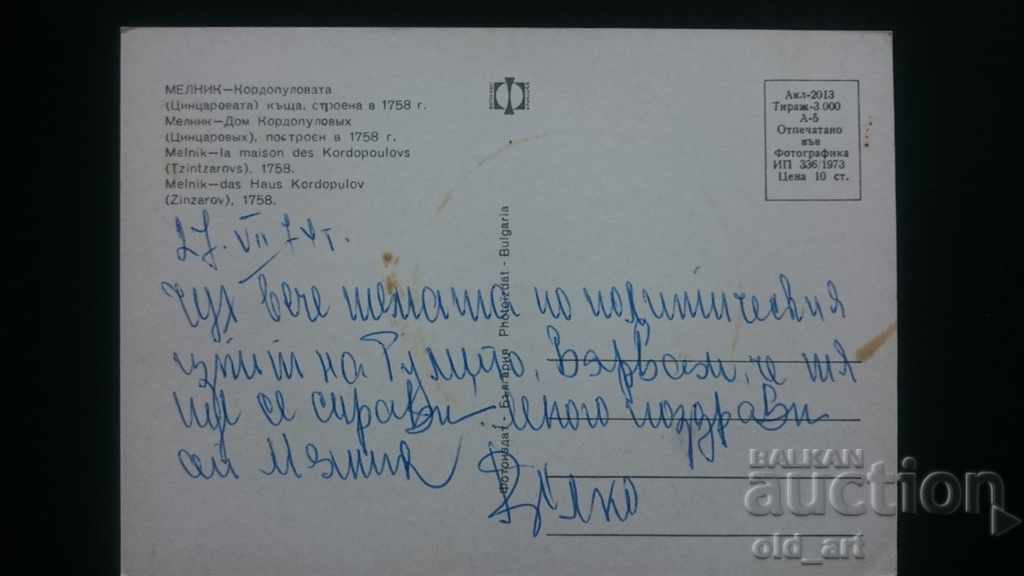 МЕЛНИК—Кордопуловата
(Цинцаровата) къща, строена в 1758 г.
Мелник—Дом Кордопуловых
(Цинцаровых), построен в 1758 г.
Melnik—la maison des Kordopoulovs
(Tzintzarovs), 1758.
Melnik—das Haus Kordopulov
(Zinzarov), 1758.
Акл-2013
Тираж-3 000
А-5
Отпечатано
във
Фотографика
ИП 336/1973
Цена 10 ст.
Фотоиздат - България Photoizdat - Bulgaria
27. VII 74 г.
Чух вече темата по политическия
изпит на . Вярвам, че тя
ще се справи. Много поздрави
от Мелник
BALKAN
auction
old_art